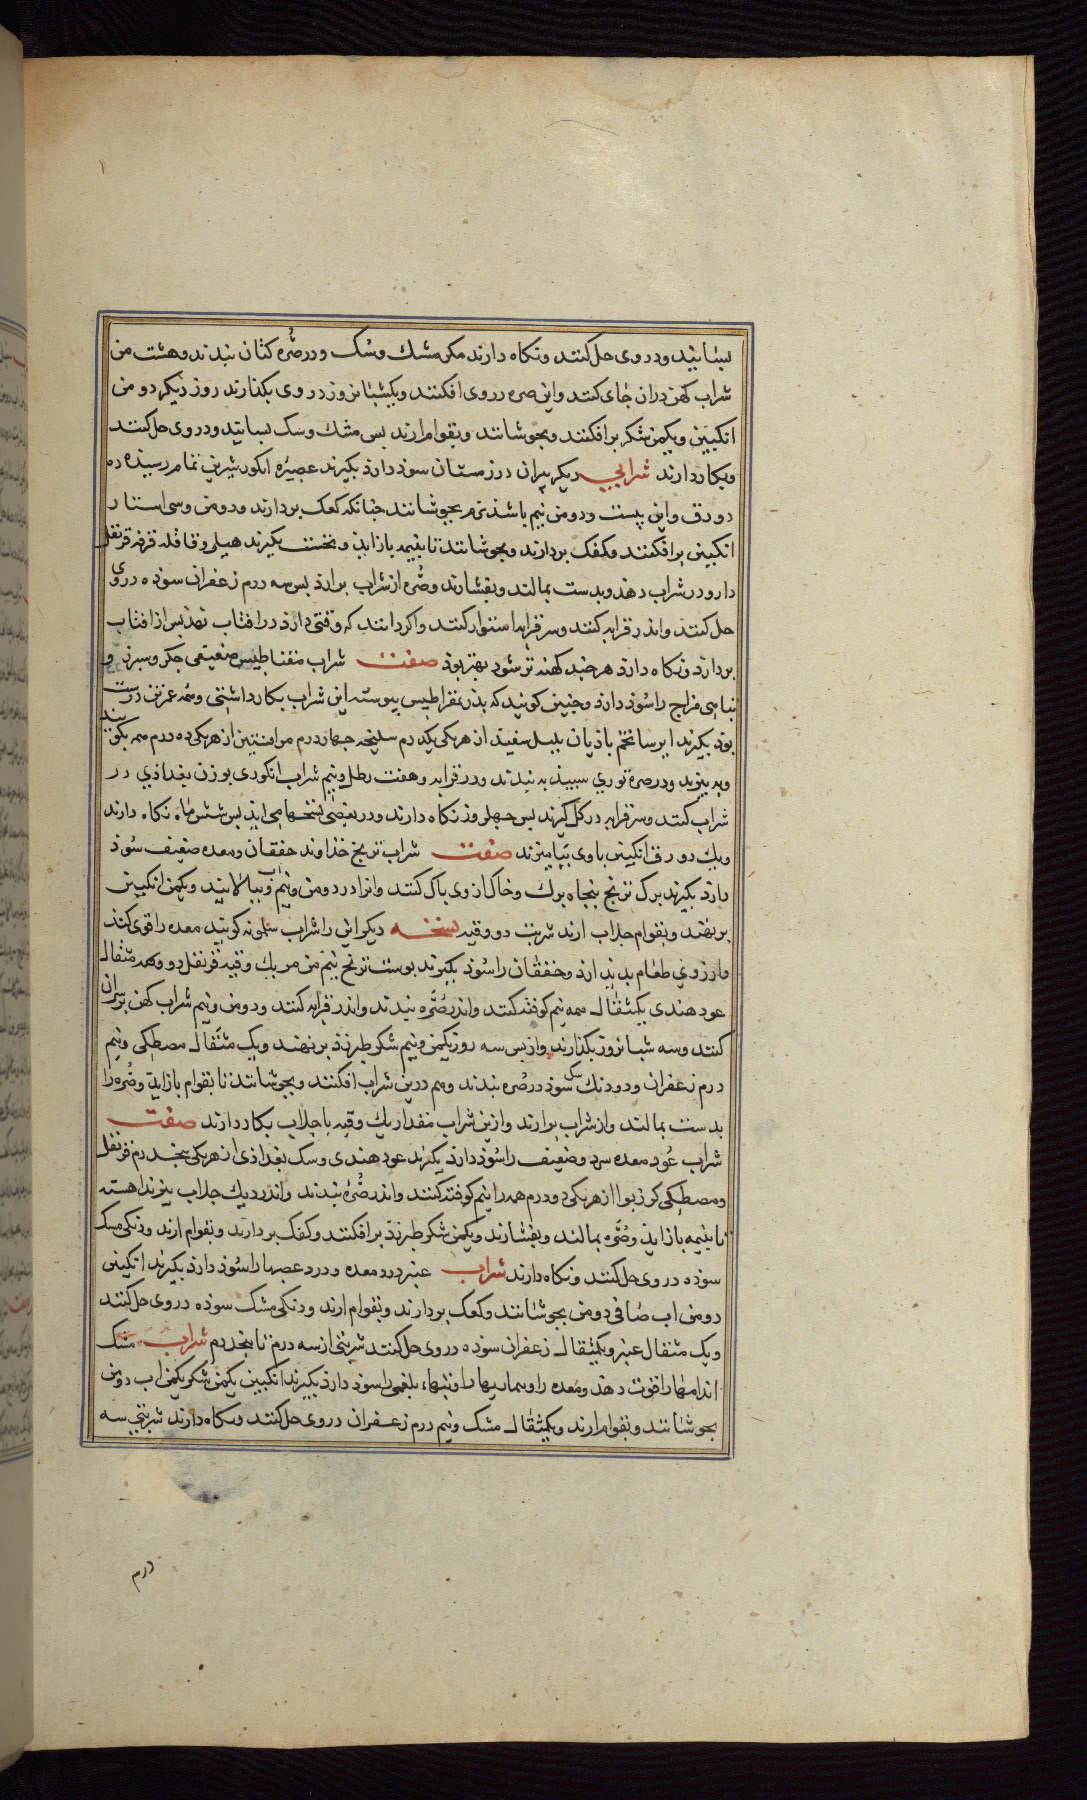 بسایند ودروی حل کنند ونکاه دارند مکر مشك وسك ودر صُرّه کتان بندند وهشت من
شراب کهن دران جای کنند واین صره درروی افکنند ویکشبانروز درروی بکذارند روز دیکر دو من
انکبین ویکمن شکر برافکنند وبجوشانند وبقوام ارند بس مشك وسك بسایند ودروی حل کنند
وبکار دارند شرابی دیکر پیران درزمستان سوذ دارذ بکیرند عصیره انکور شیرین تمام رسیذه ده
دورق واین بیست ودو من نیم باشذ نرم بجوشانند جنانکه کفك بردارند ودو من وسی استار
انکبین برافکنند وکفک بردارند وبجوشانند تا بنیمه بازاید ونخست بکیرند هیل وقاقله قرفه قرنفل
دارو در شراب دهند وبدست بمالند وبفشارند وصُره از شراب برارذ بس سه درم زعفران سوذه درروی
حل کنند واندر قرابه کنند وسر قرابه استوار کنند واکر دانند که وقتی دارذ در افتاب نهند بس از افتاب
بردارذ ونکاه دارذ هر جند کهنه تر شود بهتر بوذ صفت شراب مغناطیس ضعیفی جکر وسرزی و
تباهی مزاج را سُوذ دارذ وجنین کویند که بذر بقراطیس پیوسته این شراب بکار داشتی وهمه عمر تن درست
بوذ بکیرند ایرسا تخم باذیان بلبل سفید از هر یکی یکدرم سلیخه جهار درم مر افسنتین از هر یکی ده درم همه بکوبند
وبه بیزند ودر صره توری سبیذ به بندند ودر قرابه وهفت رطل ونیم شراب انکوری بوزن بغداذی در
شراب کنند وسر قرابه در کل کیرند بس جهل روز نکاه دارند ودر بعضی نسختها می ایذ بس شش ماه نکاه دارند
ویك دورق انکبین باوی بیامیزند صفت شراب ترنج خذاوند خفقان ومعده ضعیف سُوذ
دارذ بکیرند برك ترنج بنجاه برك وخاك از وی باك کنند وانرا در دو من ونیم اب بپالایند ویکمن انکبین
برنهند وبقوام جلاب ارند شربت دو وقیه نسخه دیکر این را شراب کویند معده را قوی کند
وارزوی طعام بدید ارذ وخفقان را سُوذ بکیرند بوست ترنج نیم من مر یك وقیه قرنفل دو وهمه مثقال
عود هندی یکمثقال همه نیم کوفته کنند واندر صُره بندند واندر قرابه کنند ودو من ونیم شراب کهن بر سران
کنند وسه شبانروز بکذارند وازبس سه روز یکمن ونیم شکر طبرزذ برنهند ویک مثقال مصطکی ونیم
درم زعفران ودو دنك سك سوذ در صُره بندند وهم درین شراب افکنند وبجوشانند تا بقوام بازاید وصُره را
بدست بمالند واز شراب برارند وازین شراب مقدار یك وقیه با جلاب بکار دارند صفت
شراب عُود معده سرد وضعیف را سُوذ دارذ بکیرند عود هندی وسک بغداذی از هر یکی بنجدرم قرنفل
ومصطکی کوزبوا از هر یکی دو درم همه را نیم کوفته کنند واندر صُره بندند واندر دیك جلاب بیزند اهسته
تا بنیمه بازاید وصُره بمالند وبفشارند ویکمن شکر طبرزذ برافکنند وکفک بردارند وبقوام ارند ودنکی مسك
سوذه درروی حل کنند ونکاه دارند شراب عنبر درد معده ودرد عصبها را سُوذ دارذ بکیرند انکبین
دو من اب صافی دو من بجوشانند وکفک بردارند وبقوام ارند ودنکی مشک سوذه درروی حل کنند
ویك مثقال عنبر ویکمثقال زعفران سوذه درروی حل کنند شربتی از سه درم تا بنجدرم شراب مشک
اندامها را قوت دهذ ومعده را وبیماریها را وتبهاء بلغمی را سوذ دارذ بکیرند انکبین یکمن شکر یکمن اب دو من
بجوشانند وبقوام ارند ویکمثقال مشک ونیم درم زعفران درروی حل کنند ونکاه دارند شربتی سه
درم